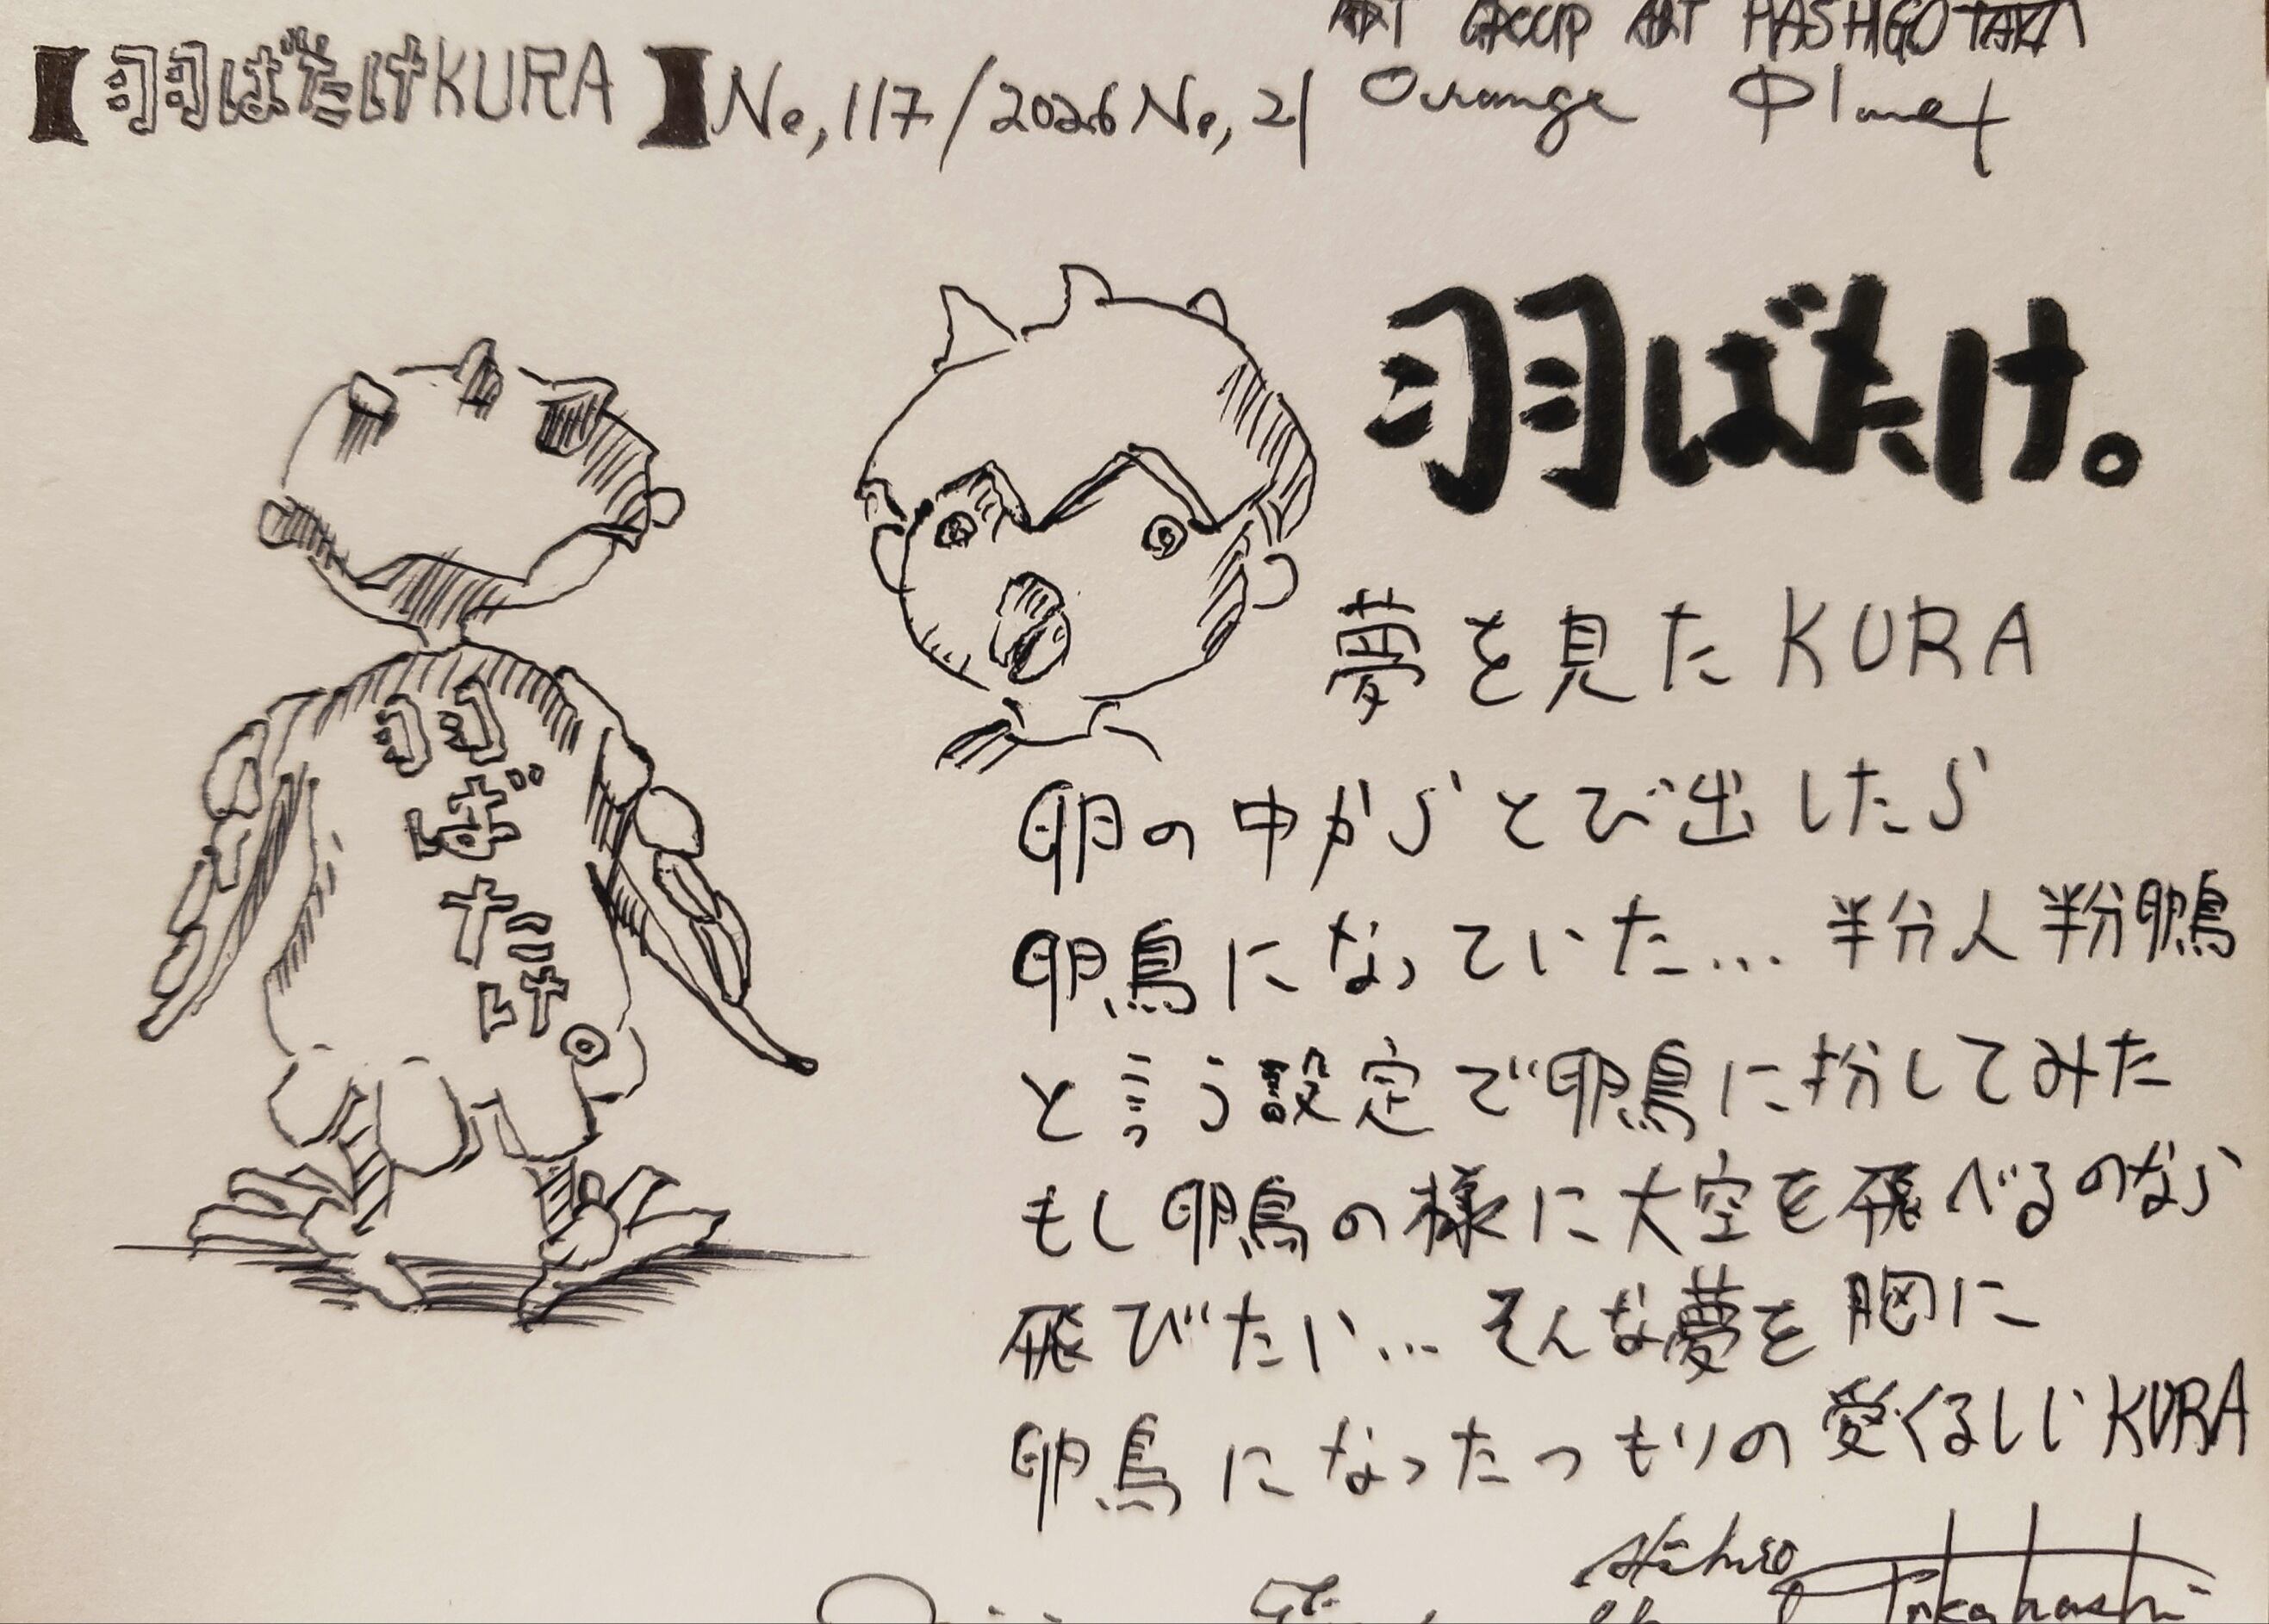 ART GROUP ART HASHIGOTAKA
【羽ばたけKURA】No,117/2026 No,21 Orange Planet
羽ばたけ。
羽ばたけ
夢を見たKURA
卵の中からとび出したら
卵鳥になっていた…半分人半分卵鳥
と言う設定で卵鳥に扮してみた
もし卵鳥の様に大空を飛べるのなら
飛びたい…そんな夢を胸に
卵鳥になったつもりの愛くるしいKURA
Takahashi